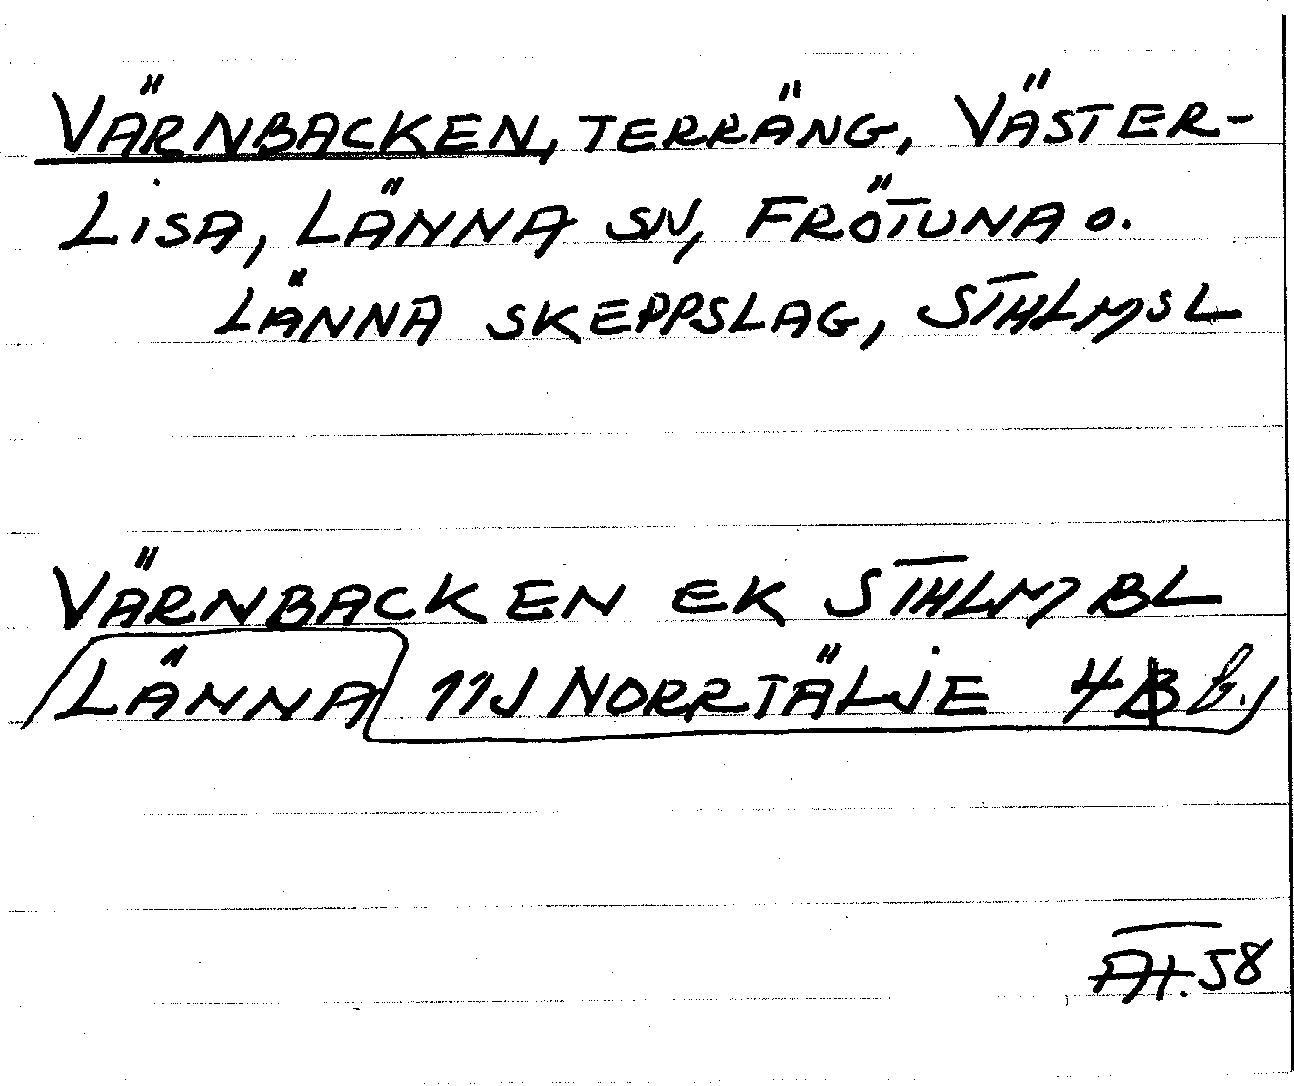 VÄRNBACKEN, TERRÄNG, VÄSTER-
LISA, LÄNNA SN, FRÖTUNA O.
LÄNNA SKEPPSLAG, STHLMSL
VÄRNBACKEN EK STHLM BL
LÄNNA 11J NORRTÄLJE 4B b.
58